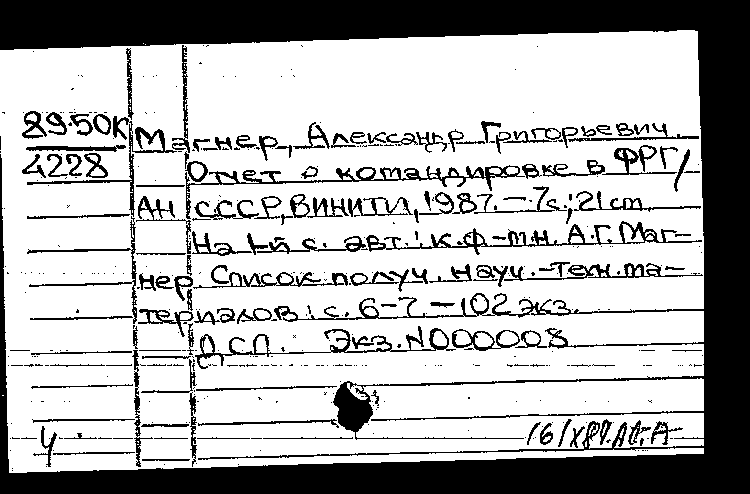 89-50К
4228
Магнер, Александр Григорьевич.
Отчет о командировке в ФРГ /
АН СССР, ВИНИТИ, 1987. — 7с.; 21 cm
На 1-й с. авт.: к.ф-м.н. А.Г. Маг-
нер. Список получ. науч.-техн. ма-
териалов: с. 6-7. — 102 экз.
ДСП. Экз. N000008
4